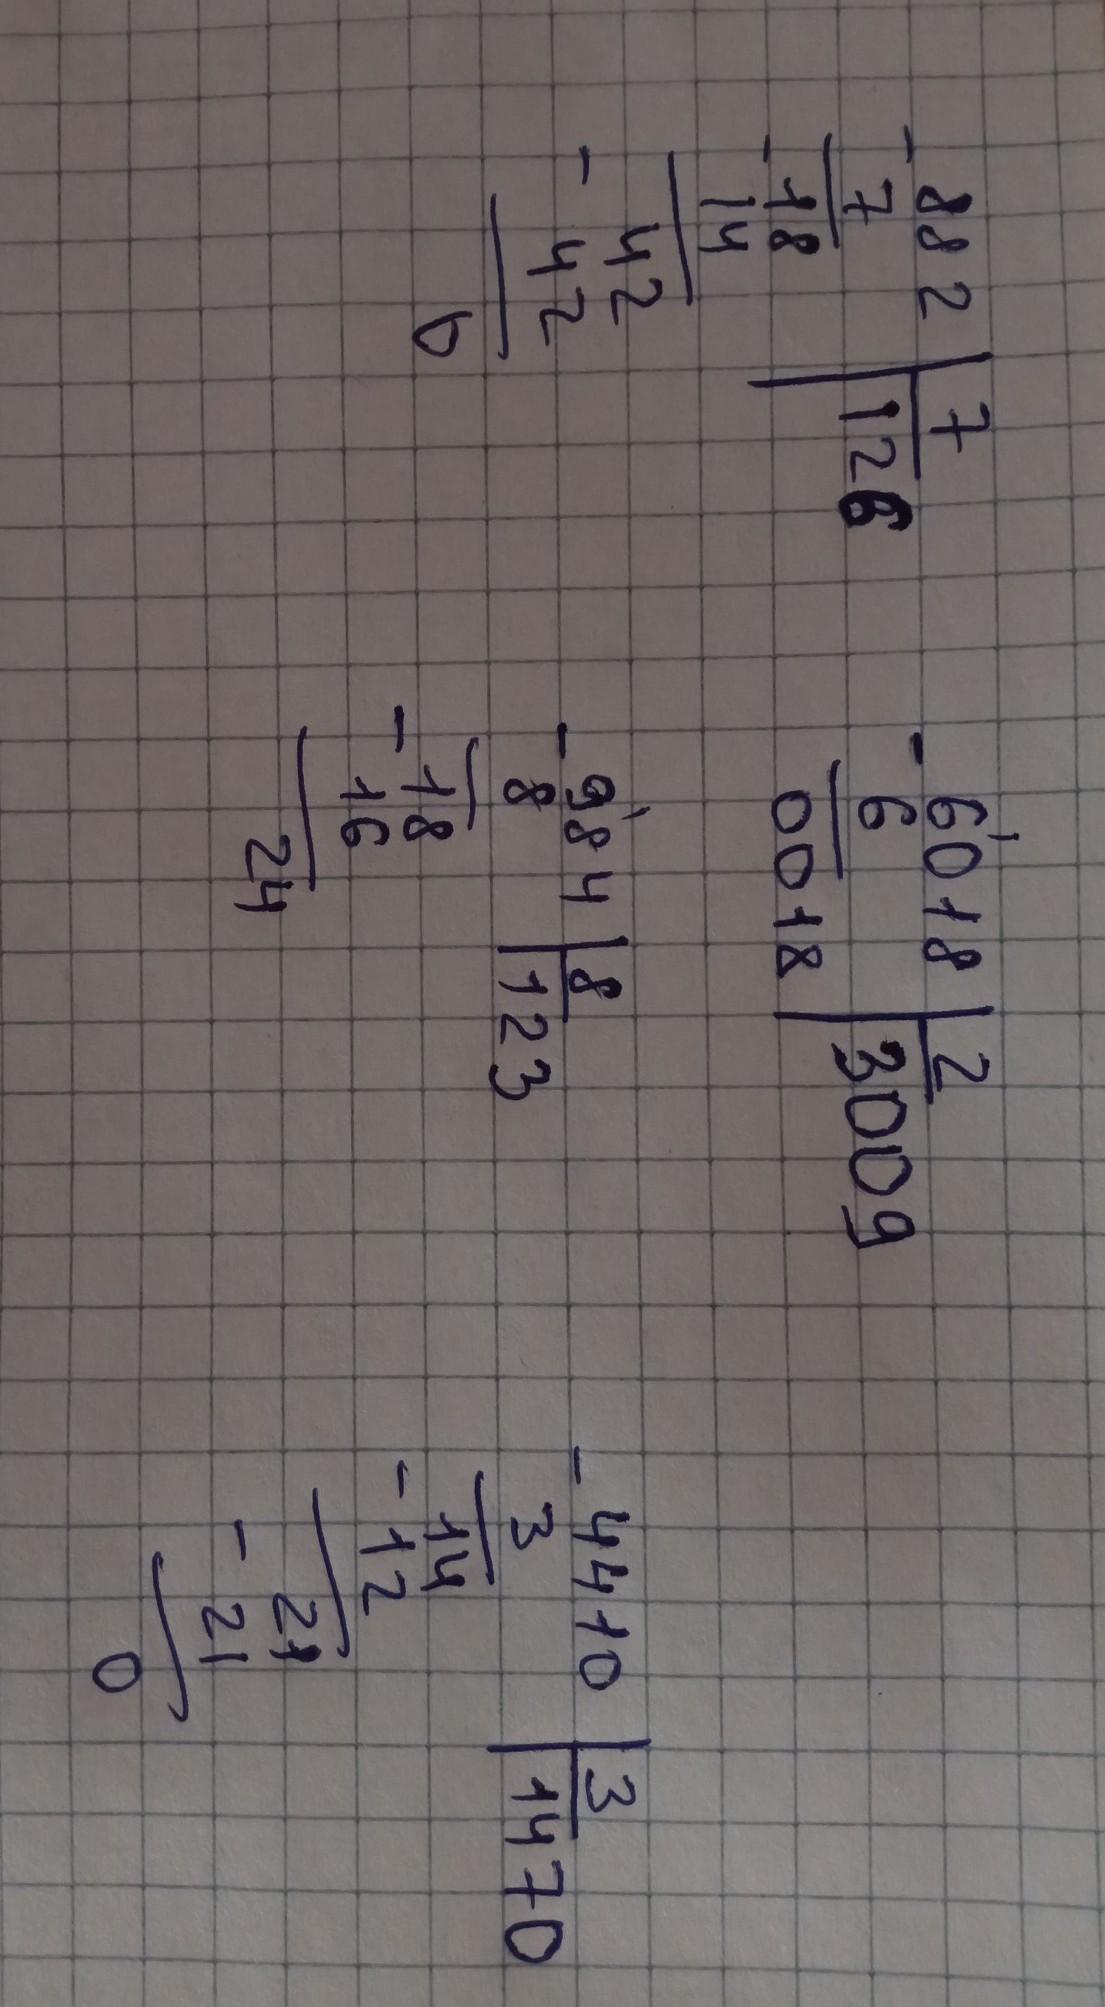 - 882 | 7
7 | 126
- 18
14
- 42
42
0
- 6018 | 2
6 | 3009
0018
- 984 | 8
8 | 123
- 18
16
24
- 4410 | 3
3 | 1470
- 14
12
- 21
21
0